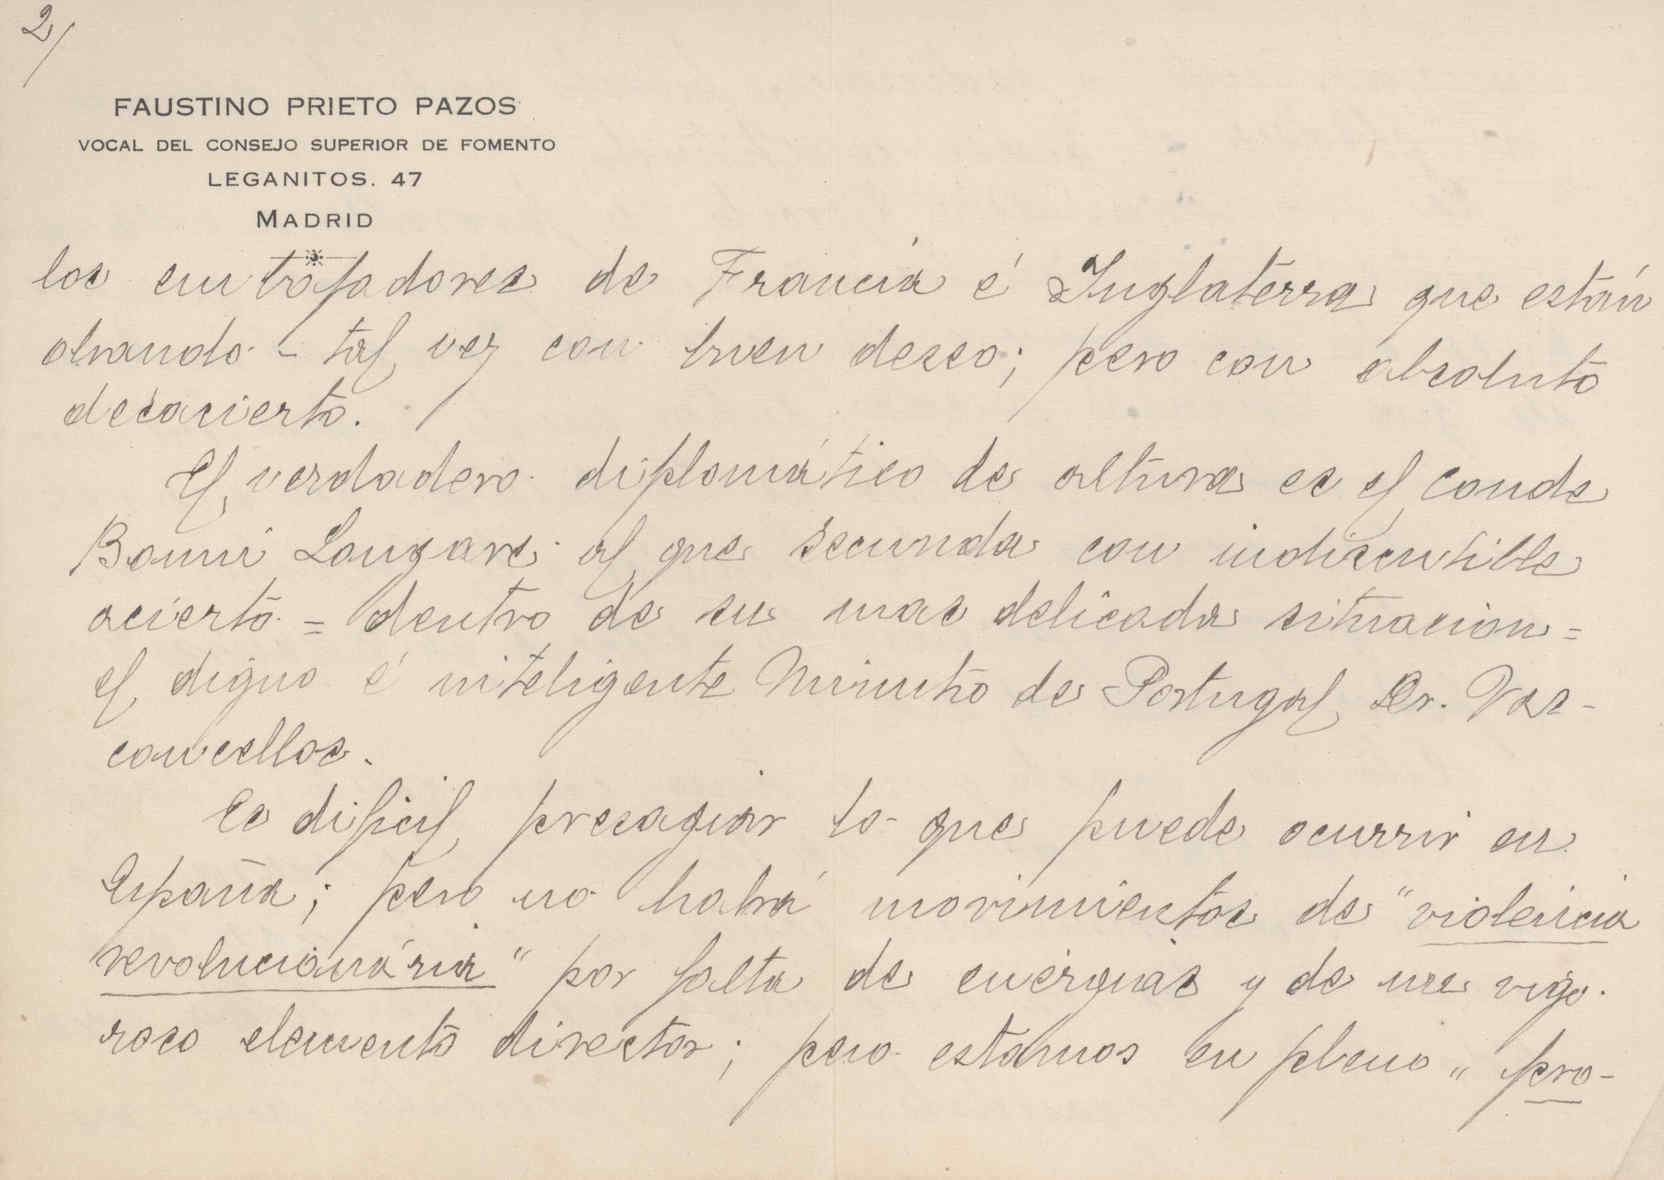 2/
FAUSTINO PRIETO PAZOS
VOCAL DEL CONSEJO SUPERIOR DE FOMENTO
LEGANITOS. 47
MADRID
los embajadores de Francia é Inglaterra que están
obrando - tal vez con buen deseo; pero con absoluto
desacierto.
El verdadero diplomático de altura es el Conde
Bonni Longare al que secunda con indiscutible
acierto = dentro de su mas delicada situacion =
el digno é inteligente Ministro de Portugal Sr. Vas-
concellos.
Es dificil presagiar lo que puede ocurrir en
España; pero no habrá movimientos de "violencia
revolucionária" por falta de energias y de un vigo-
roso elemento director; pero estamos en pleno "pro-